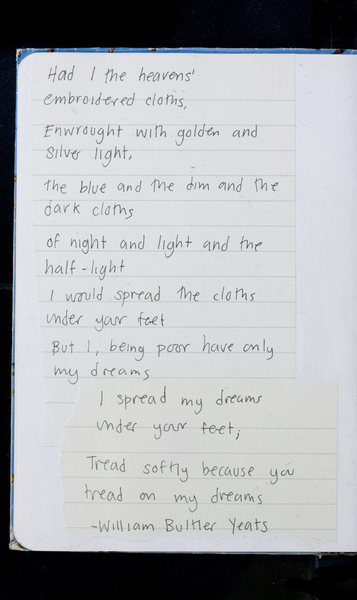 Had I the heavens'
embroidered cloths,
Enwrought with golden and
silver light,
The blue and the dim and the
dark cloths
of night and light and the
half-light
I would spread the cloths
under your feet
But I, being poor have only
my dreams
I spread my dreams
under your feet;
Tread softly because you
tread on my dreams
-William Bultler Yeats